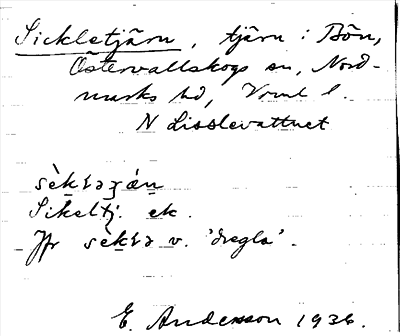 Sickletjärn, tjärn i Bön,
Östervallskogs sn, Nord-
marks hd, Vrml l.
N Lisslevattnet
Sikeltj. ek.
Jfr sè̀kɬə v. 'dregla'.
E. Andersson 1936.